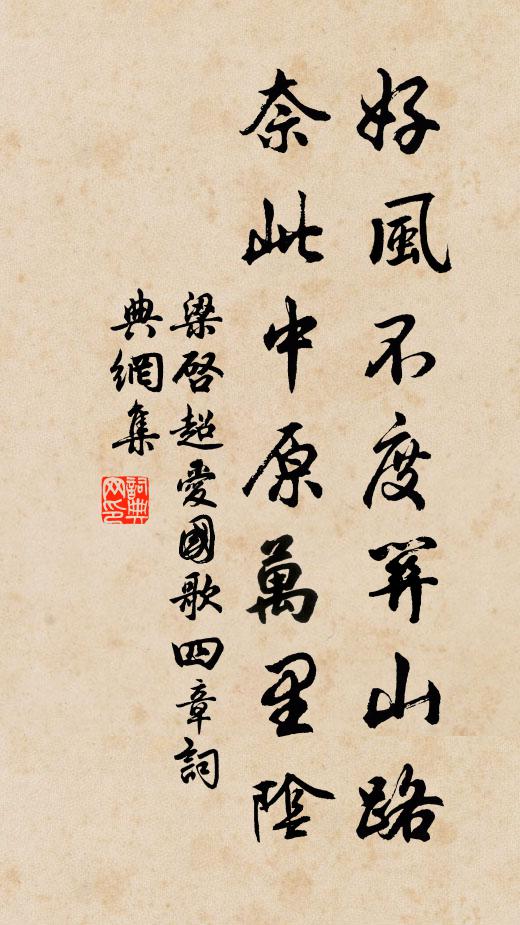 好風不度關山路
奈此中原萬里陰
梁啓超愛國歌四章詞
典網集
詞典
网印